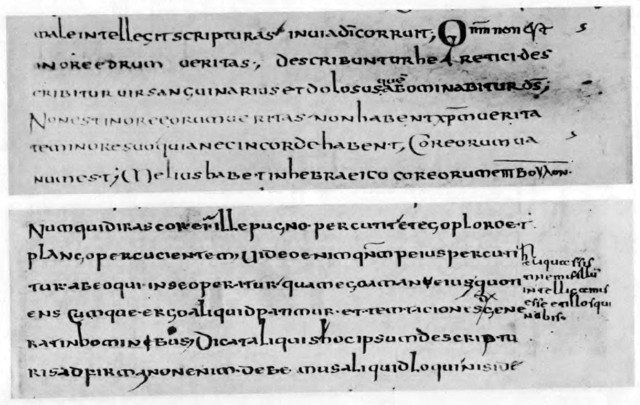 male intellegit scripturas in uia di corruit; Qnm non est
in ore eorum ueritas; describuntur heretici des
cribitur uir sanguinarius et dolosus que abominabitur ds;
Non est in ore eorum ueritas non habent xpm uerita
tem in ore suo quia nec in corde habent, Cor eorum ua
num est; Melius habet in hebraeico cor eorum ΒΟΥΛΟΝ.
Numquid ille pugno percutit et ego ploro et
plango percucientem; Uideo enim qnm peius percuti
tur ab eo qui in se operatur quam ego a manu eius quoti
ens cumque ergo aliquid patimur et temtationis gene
rat in hominibus; Dicat aliquis hoc ipsum de scriptu
ris adfirma non enim debemus aliquid loqui nisi de
esse et illos qui
nobis.